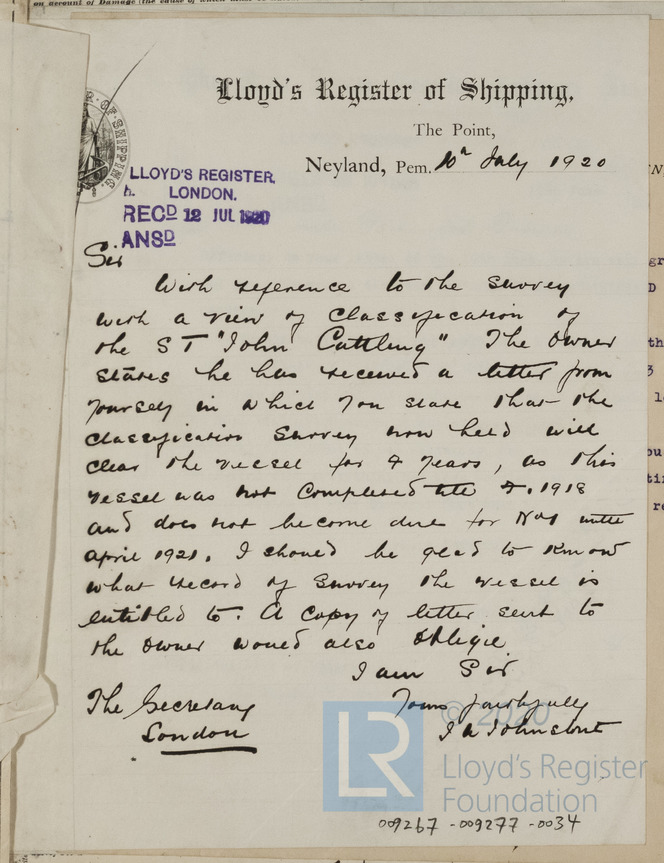 on account of Damage (the cause of which must
Lloyd's Register of Shipping,
The Point,
Neyland, Pem. 10th July 1920
OF·SHIPPING.
LLOYD'S REGISTER,
LONDON.
RECD 12 JUL 1920
ANSD
Sir
With reference to the survey
with a view of Classification of
the S T "John Cattling" The Owner
states he has received a letter from
yourself in which you state that the
Classification Survey now held will
clear the vessel for 4 years, as this
vessel was not Completed till 4. 1918
and does not become due for No 1 until
April 1921. I should be glad to know
what record of Survey the vessel is
entitled to. A copy of letter sent to
the Owner would also oblige
I am Sir
Yours faithfully
The Secretary
London
© 2020
LR
Lloyd's Register
Foundation
009267-009277-0034